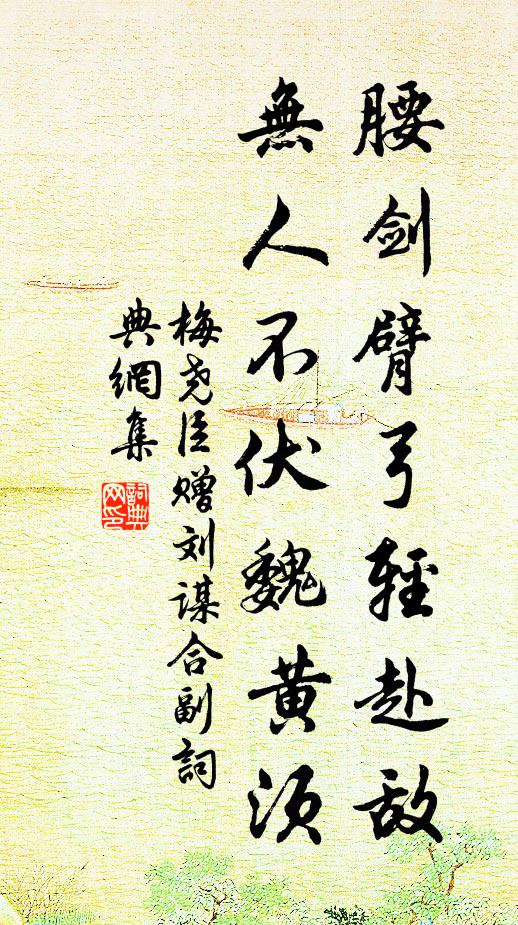 腰剑臂弓轻赴敌
無人不伏魏黄须
梅尧臣赠刘谋合副詞
典網集
詞典网印